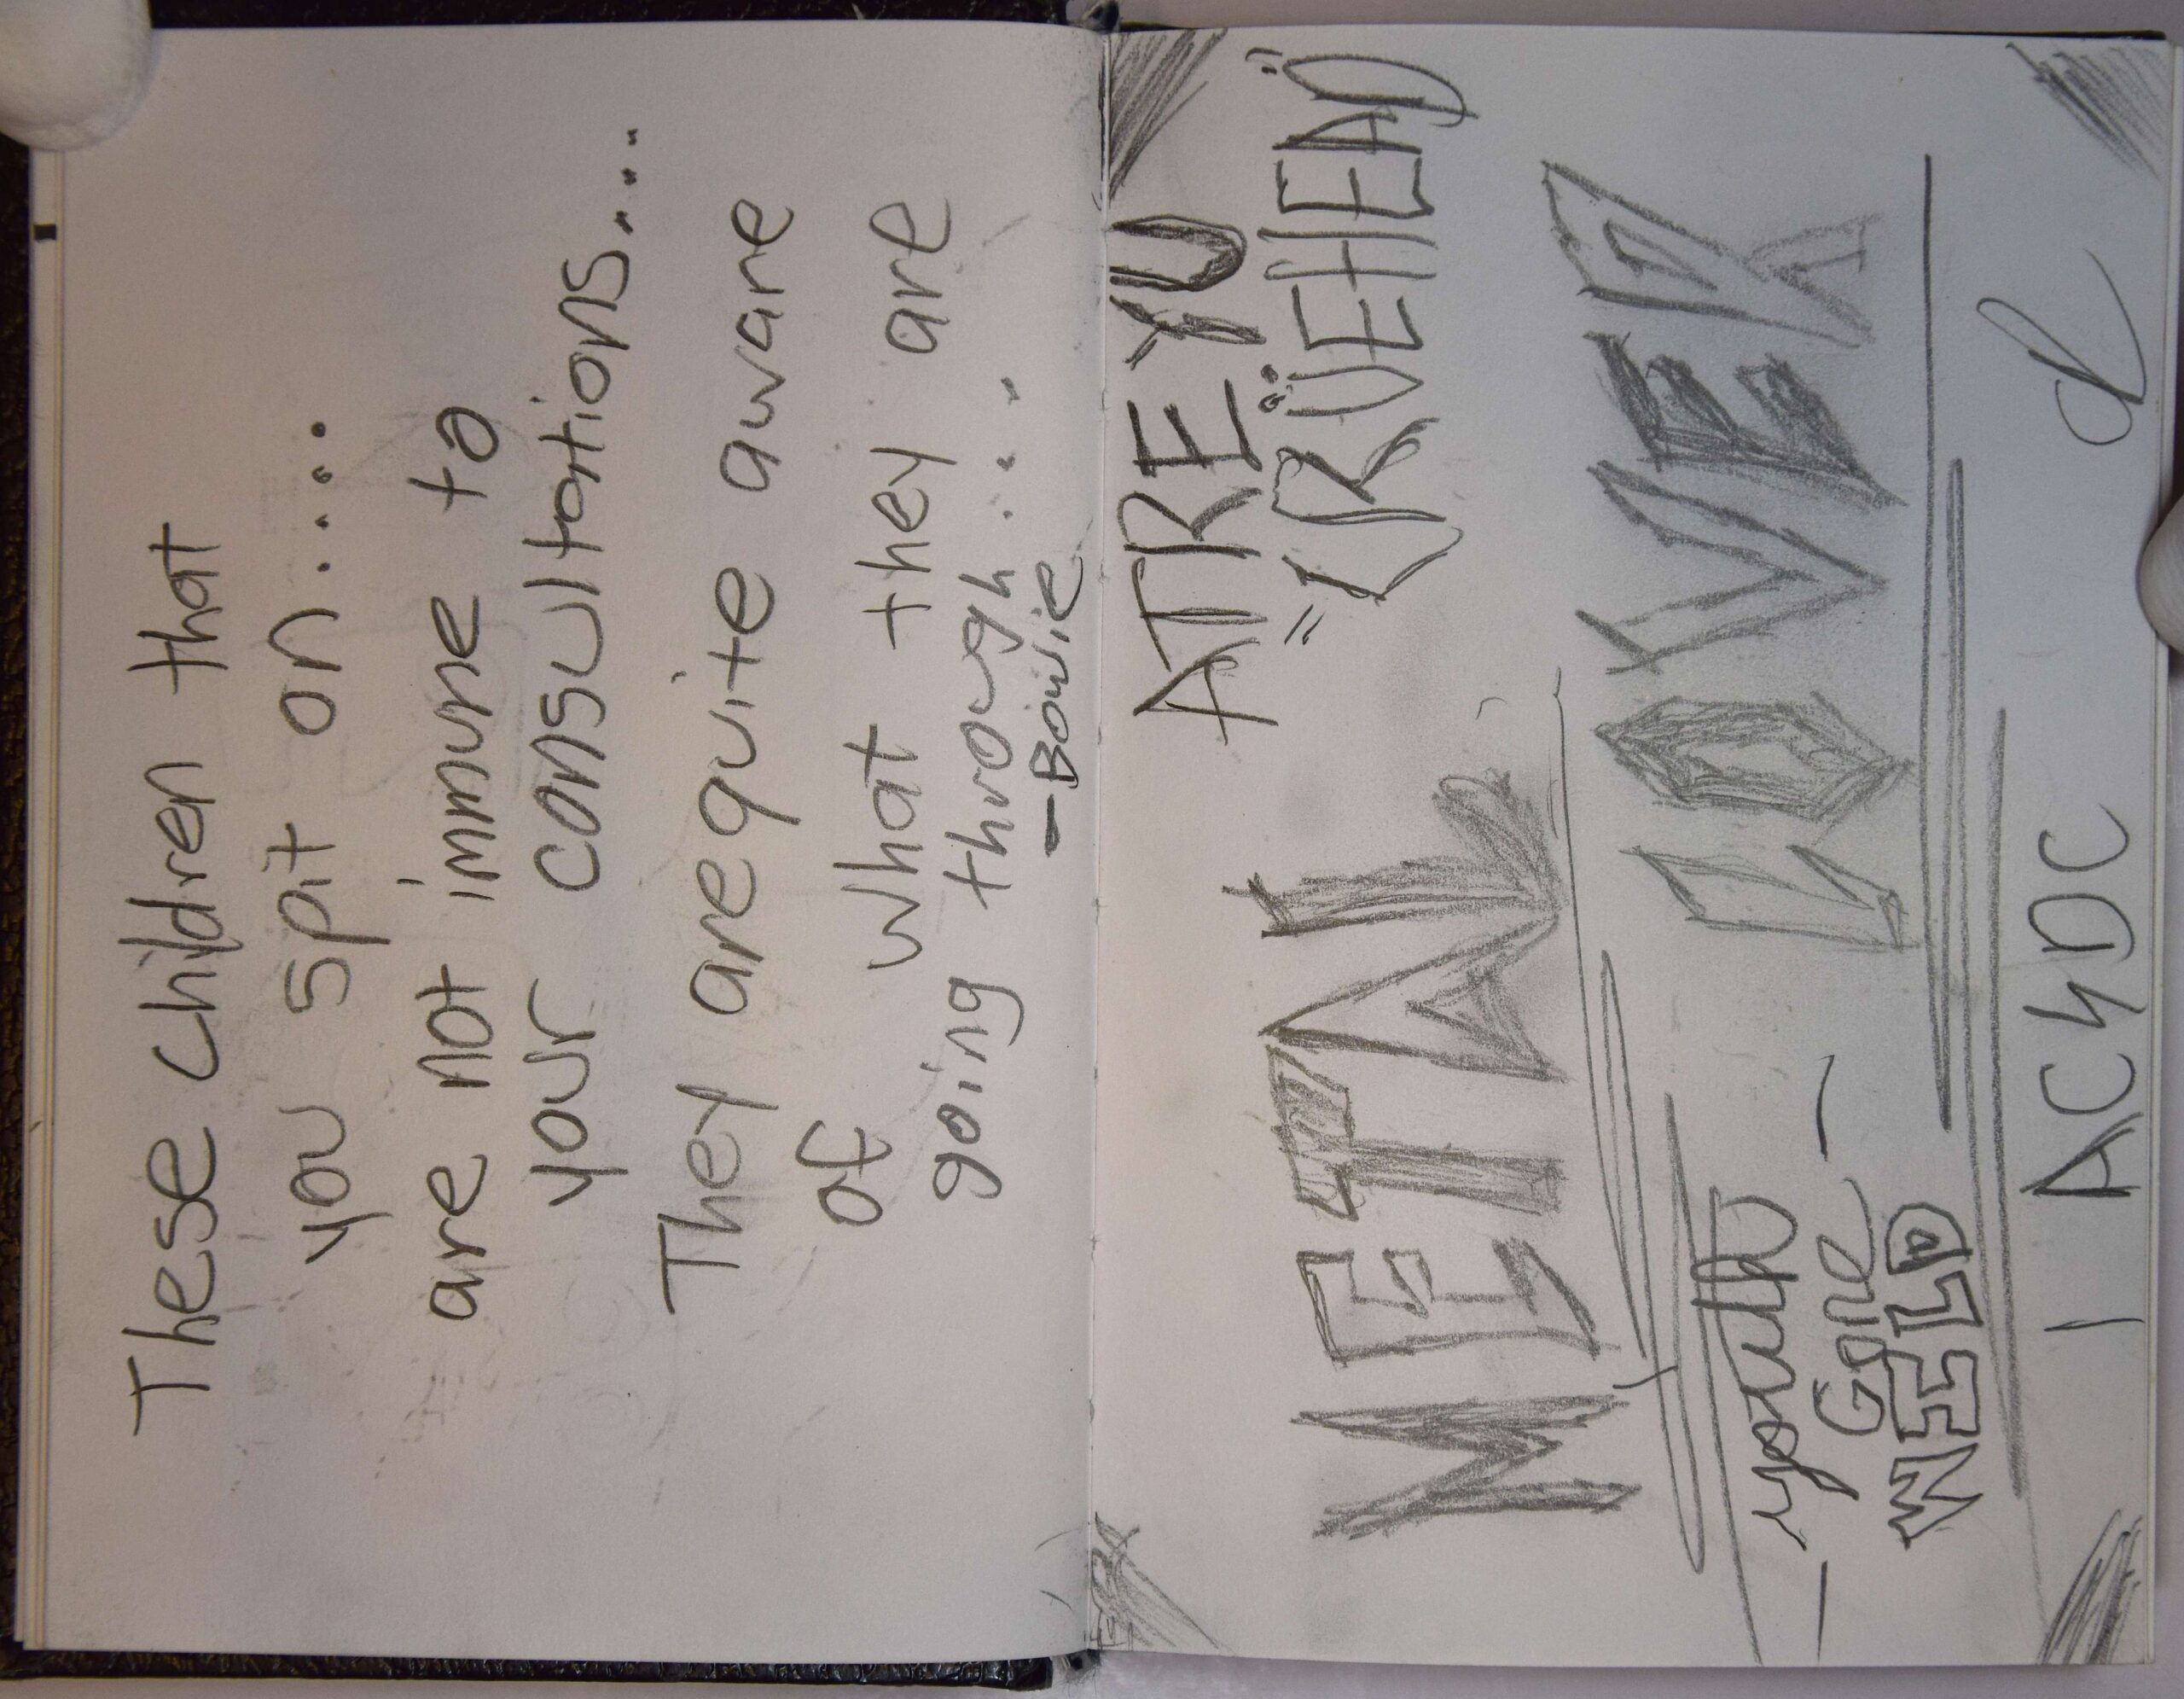 These children that
you spit on.....
are not immune to
your consultations....
They are quite aware
of what they are
going through....
-Bowie
ATREYU
METAL
LOVER
youth
Gone
WEILD
AC4DC